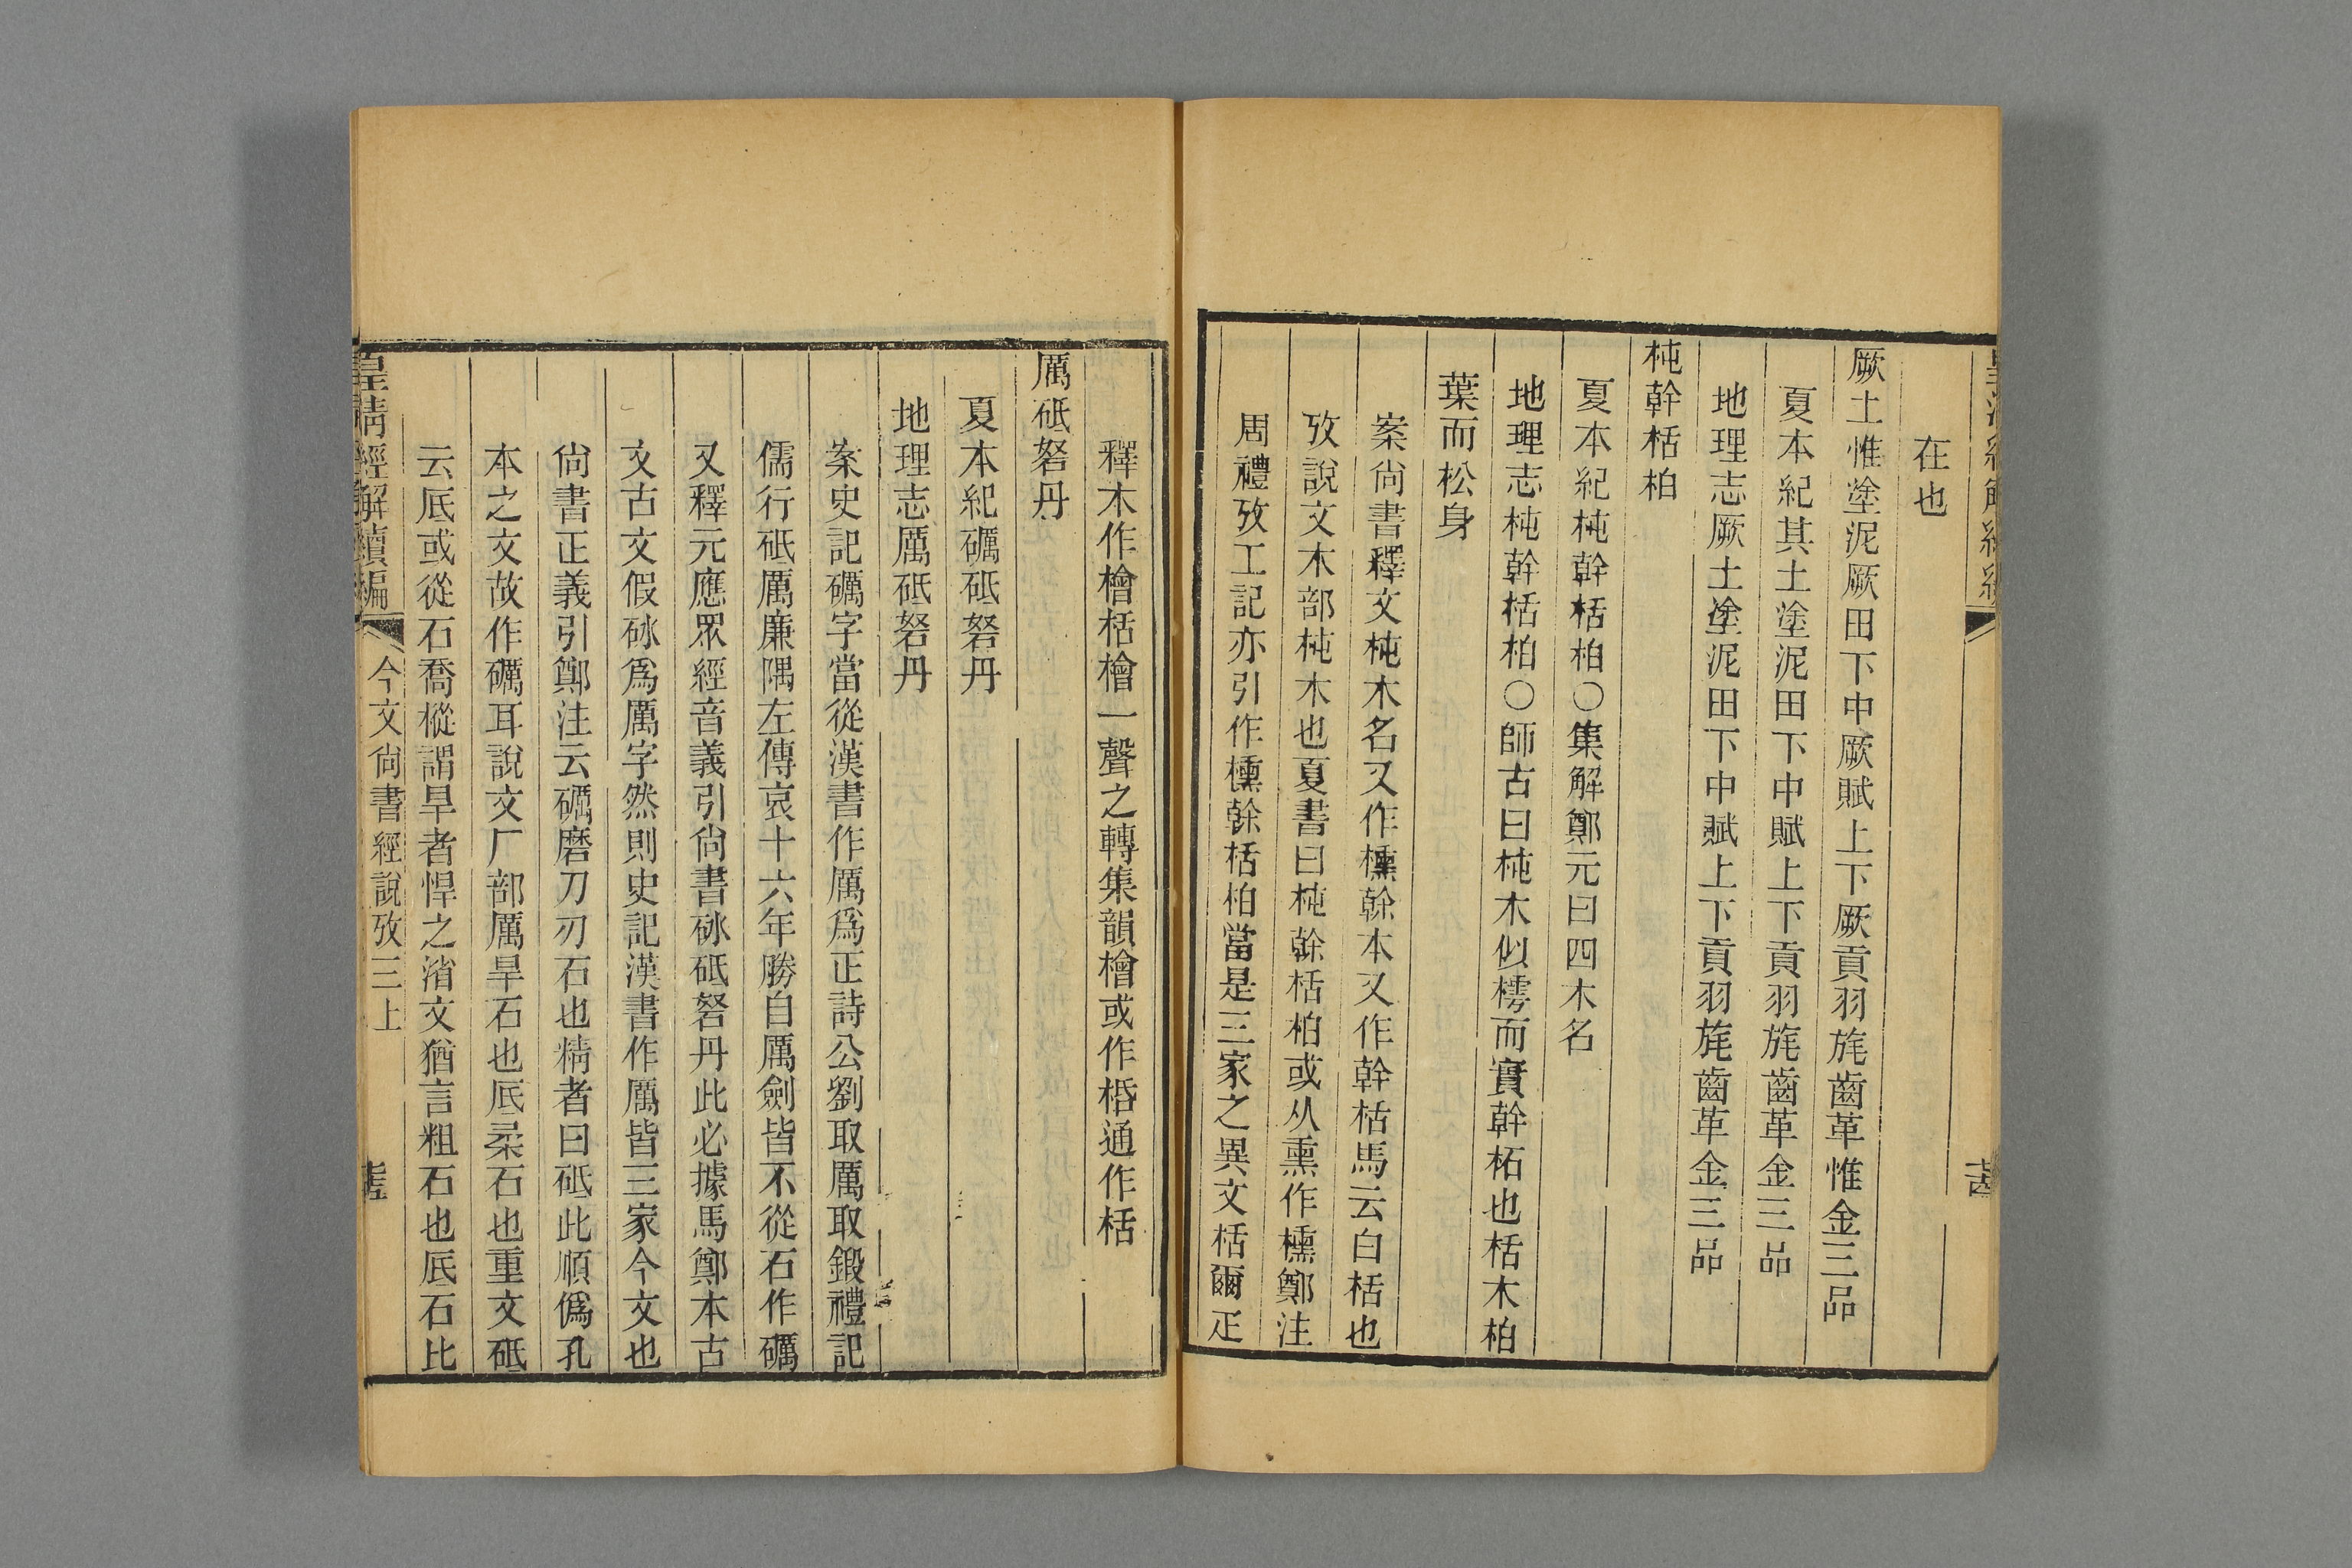 在也
厥土惟塗泥厥田下中厥賦上下厥貢羽旄齒革惟金三品
夏本紀其土塗泥田下中賦上下貢羽旄齒革金三品
地理志厥土塗泥田下中賦上下貢羽旄齒革金三品
杶幹栝柏
夏本紀杶幹栝柏○集解鄭元曰四木名
地理志杶幹栝柏○師古曰杶木似樗而實幹柘也栝木柏
葉而松身
案尙書釋文杶木名又作櫄榦本又作幹栝馬云白栝也
攷說文木部杶木也夏書曰杶榦栝柏或从熏作櫄鄭注
周禮攷工記亦引作櫄榦栝柏當是三家之異文栝爾疋
釋木作檜栝檜一聲之轉集韻檜或作桰通作栝
厲砥砮丹
夏本紀礪砥砮丹
地理志厲砥砮丹
案史記礪字當從漢書作厲爲正詩公劉取厲取鍛禮記
儒行砥厲廉隅左傳哀十六年勝自厲劍皆不從石作礪
又釋元應眾經音義引尙書砅砥砮丹此必據馬鄭本古
文古文假砅爲厲字然則史記漢書作厲皆三家今文也
尙書正義引鄭注云礪磨刀刃石也精者曰砥此順僞孔
本之文故作礪耳說文厂部厲旱石也厎柔石也重文砥
云厎或從石喬樅謂旱者悍之渻文猶言粗石也厎石比
皇淸經解續編
今文尙書經說攷三上